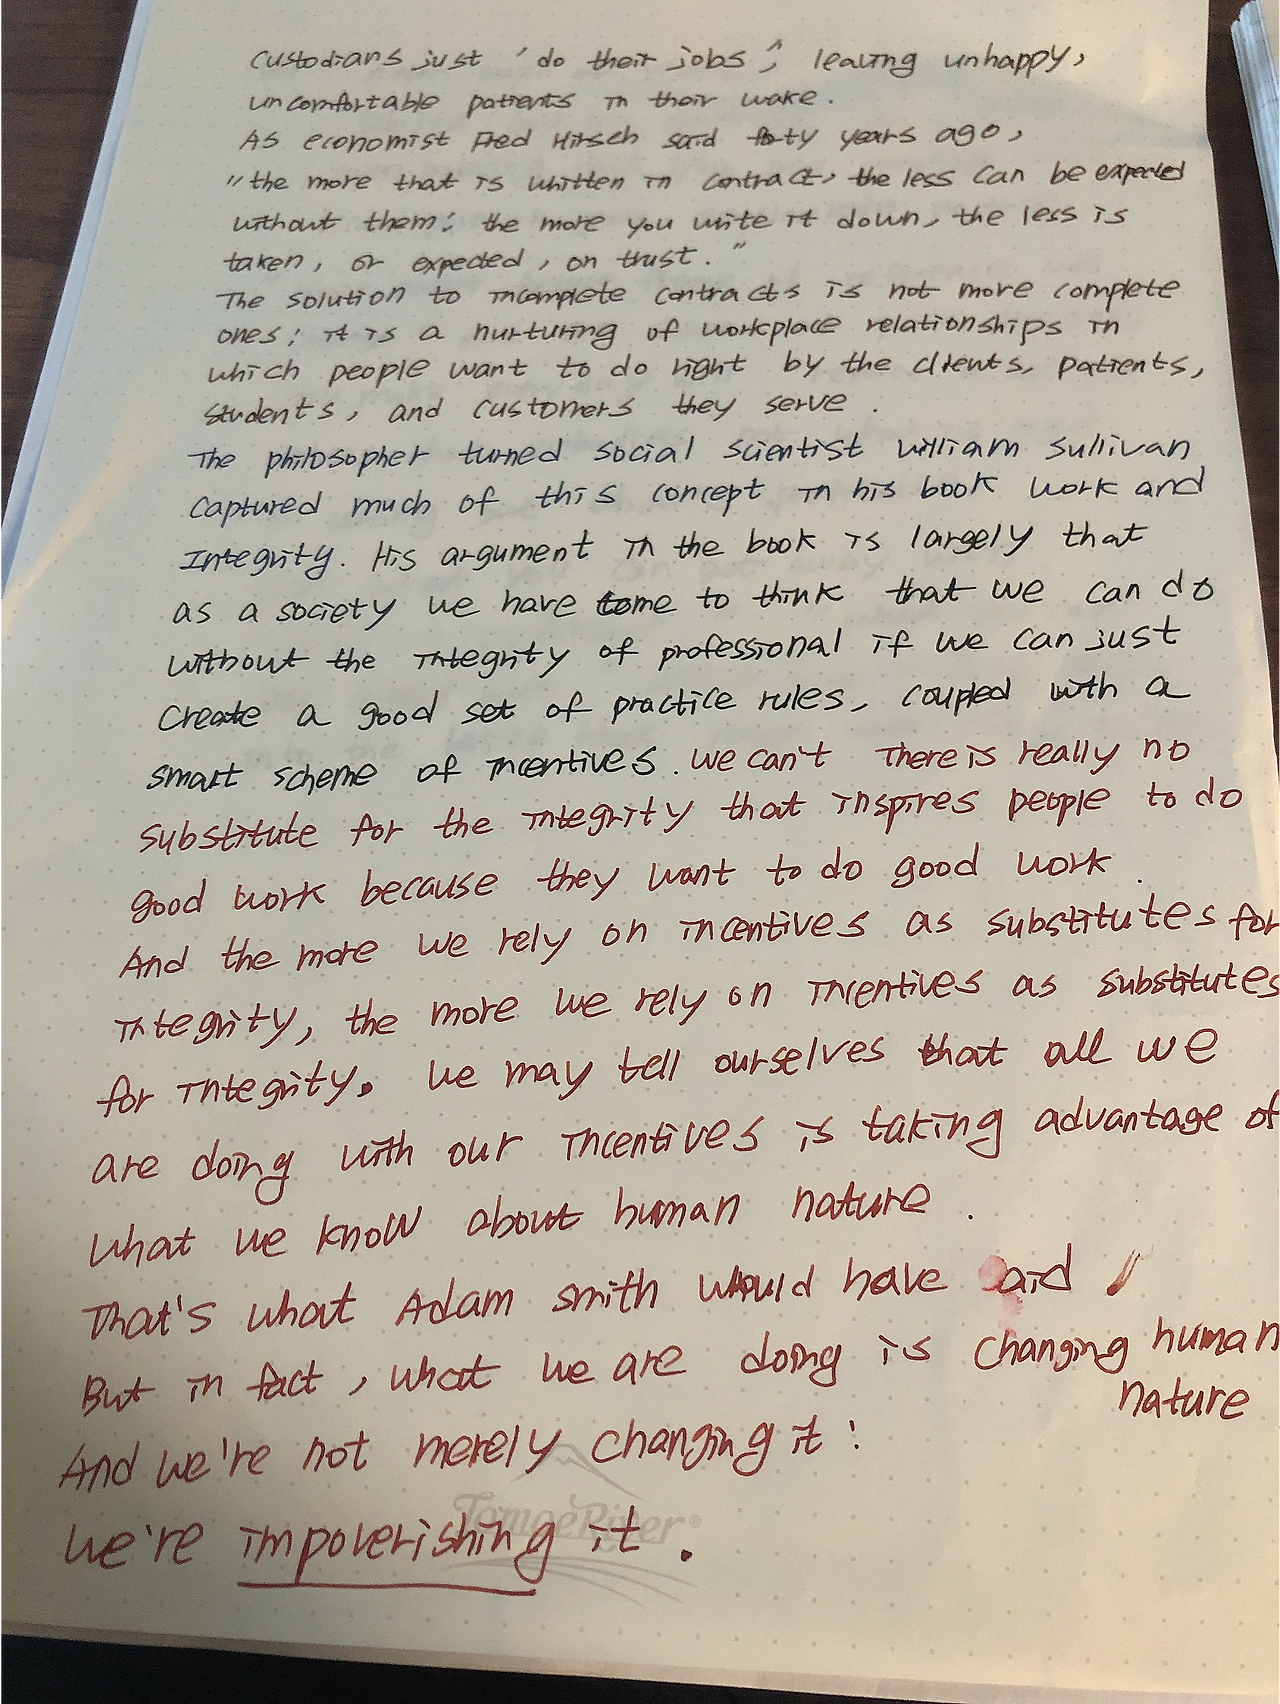 custodians just 'do their jobs', leaving unhappy,
uncomfortable patients in their wake.
As economist Fred Hirsch said forty years ago,
"the more that is written in contract, the less can be expected
without them; the more you write it down, the less is
taken, or expected, on trust."
The solution to incomplete contracts is not more complete
ones; it is a nurturing of workplace relationships in
which people want to do right by the clients, patients,
students, and customers they serve.
The philosopher turned social scientist william Sullivan
captured much of this concept in his book work and
Integrity. His argument in the book is largely that
as a society we have come to think that we can do
without the integrity of professional if we can just
create a good set of practice rules, coupled with a
smart scheme of incentives. we can't There is really no
substitute for the integrity that inspires people to do
good work because they want to do good work.
And the more we rely on incentives as substitutes for
integrity, the more we rely on incentives as substitutes
for integrity. we may tell ourselves that all we
are doing with our incentives is taking advantage of
what we know about human nature.
That's what Adam smith would have said
But in fact, what we are doing is changing human
nature
And we're not merely changing it:
we're impoverishing it.
TomoeRiver®